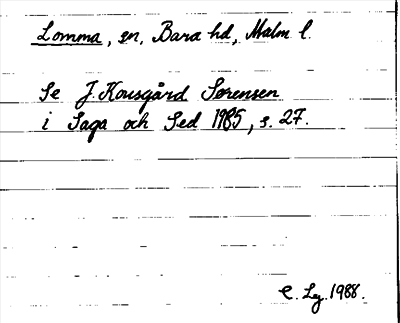 Lomma, sn, Bara hd, Malm l.
Se J. Kousgård Sørensen
i Saga och Sed 1985, s. 27.
C. Lg. 1988.